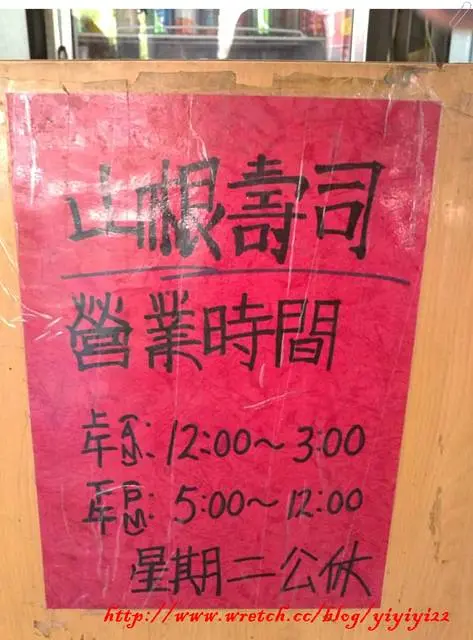 山根壽司
營業時間
上午(AM): 12:00～3:00
下午(PM): 5:00～12:00
星期二公休
http://www.wretch.cc/blog/yiyiyi22